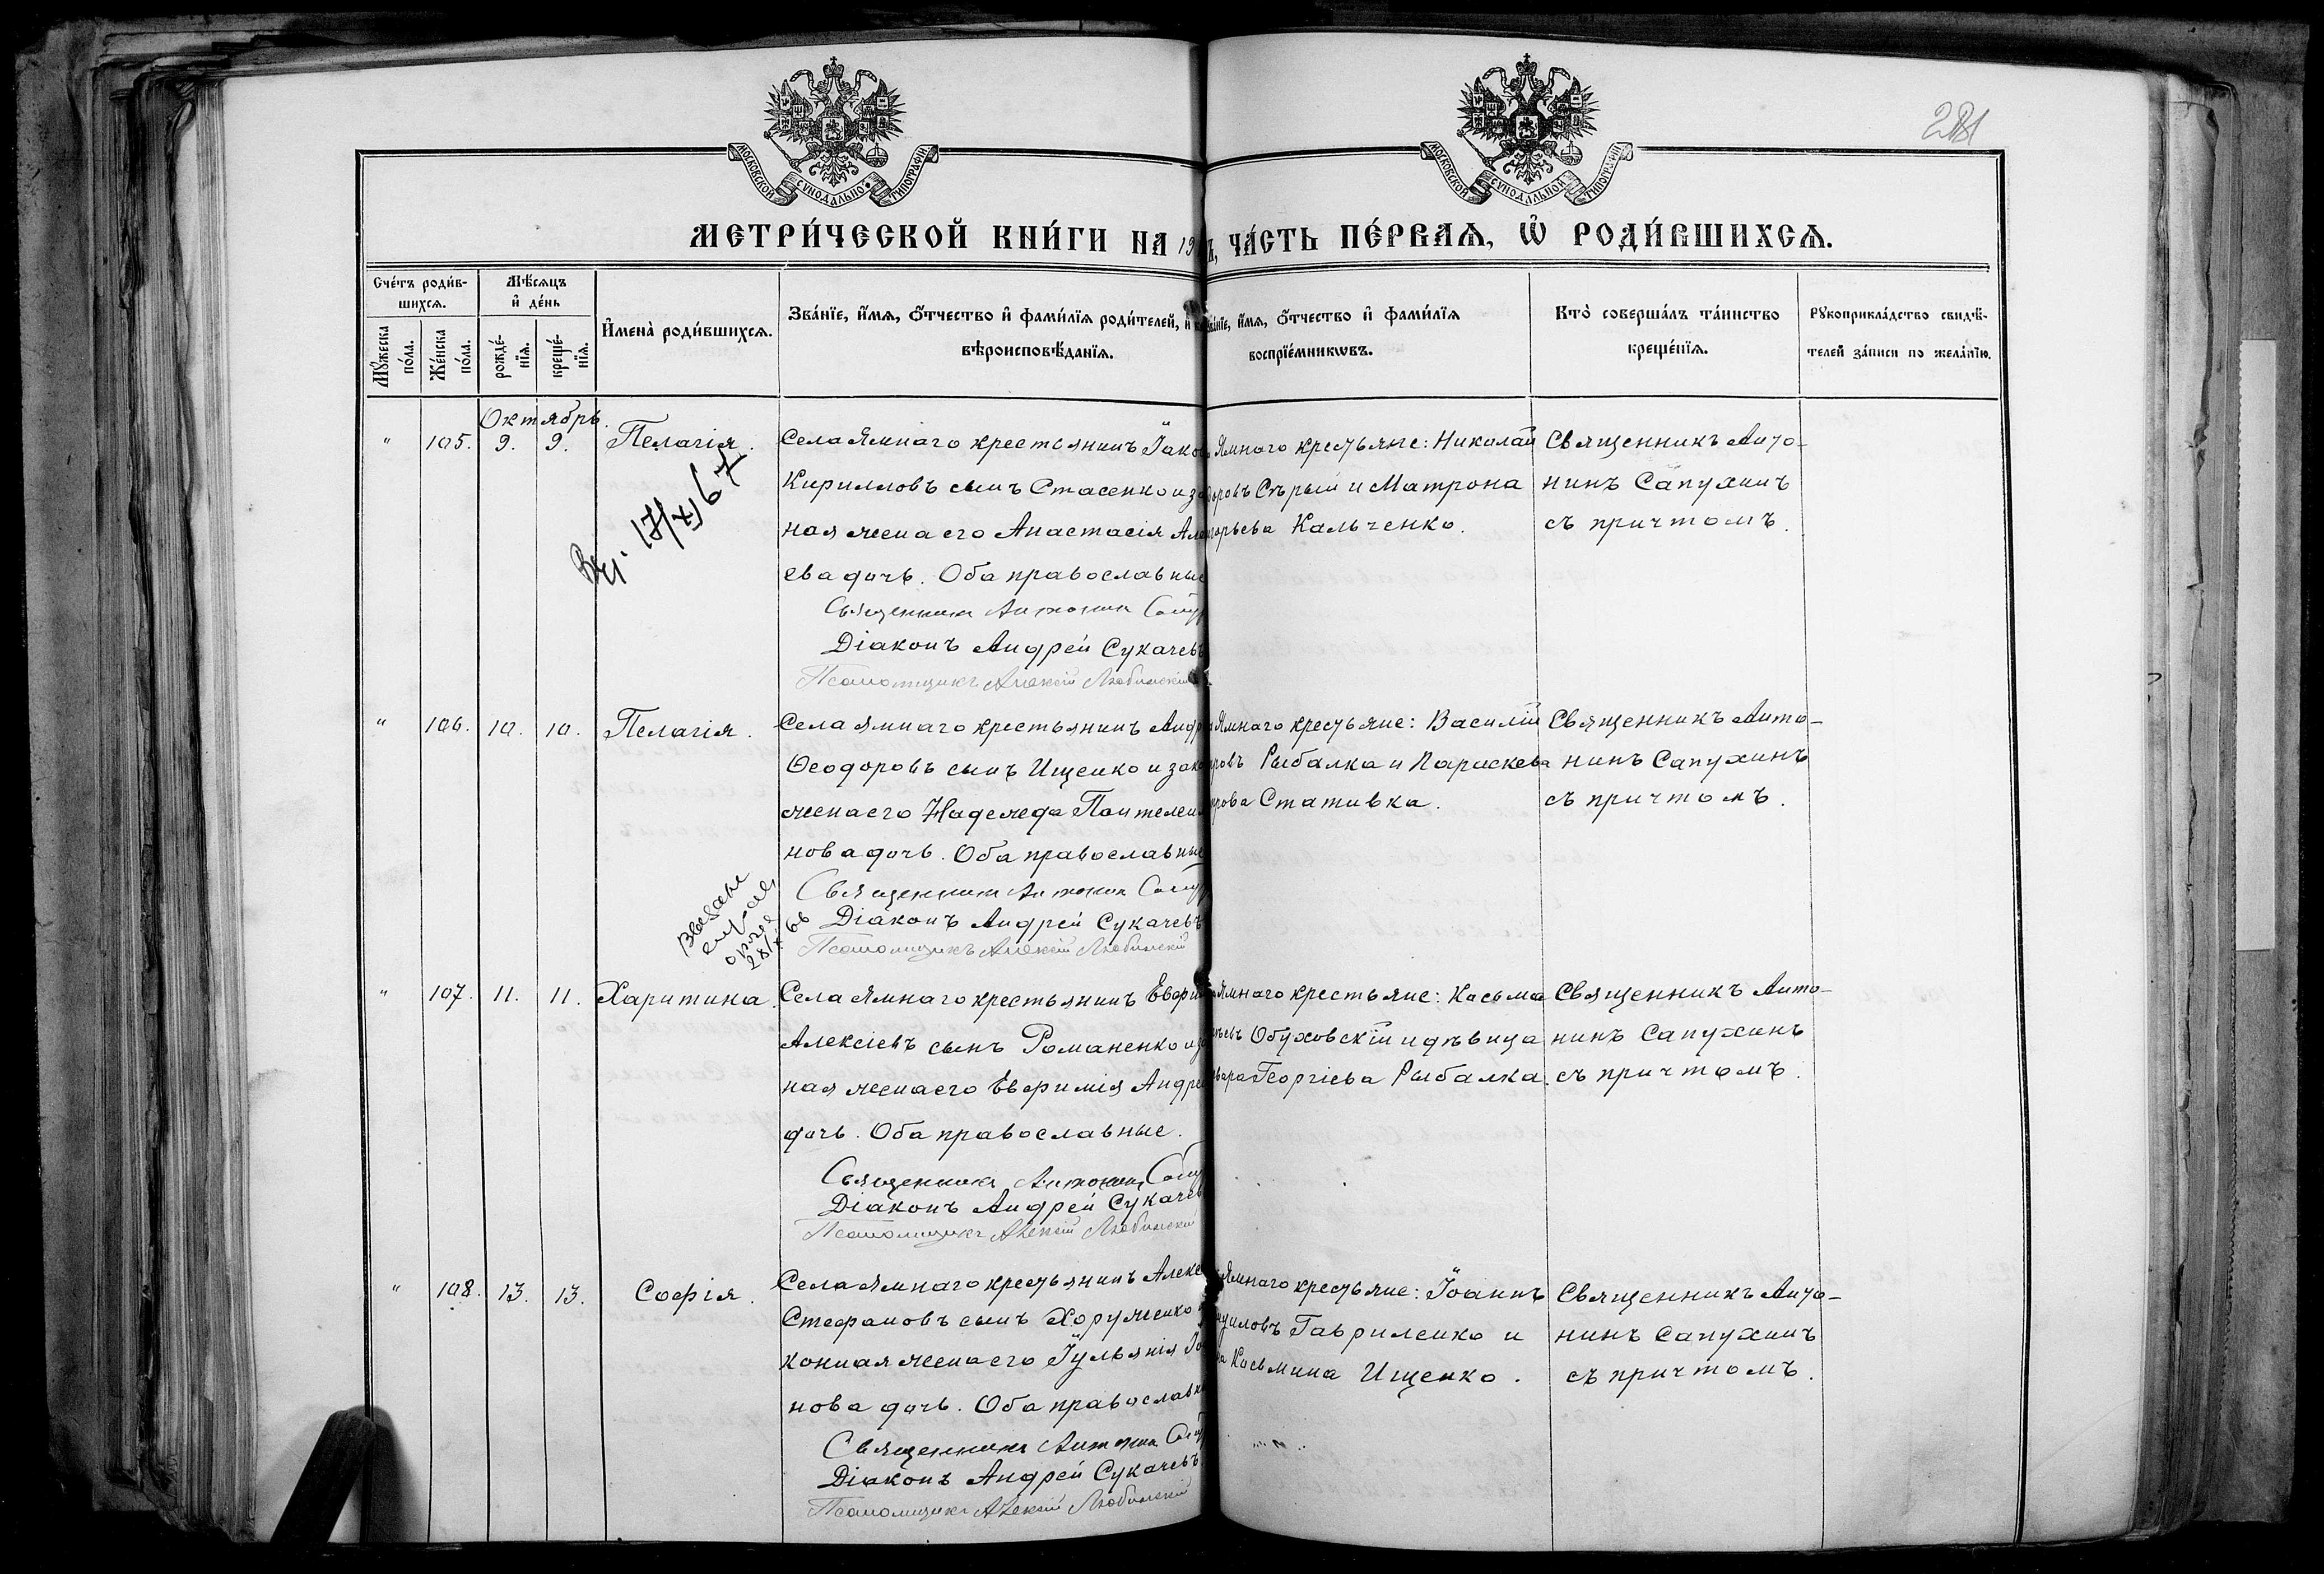 281
МОСКОВСКОЙ СѴНОДАЛЬНОЙ ТИПОГРАФІИ
МОСКОВСКОЙ СѴНОДАЛЬНОЙ ТИПОГРАФІИ
МЕТРИ́ЧЕСКОЙ КНИ́ГИ НА 19
ЧА́СТЬ ПЕ́РВАЯ, Ѡ҆ РОДИ́ВШИХСѦ.
Сче́тъ роди́в-
шихсѧ.
Мꙋ́жеска по́ла.
Же́нска по́ла.
Мѣ́сѧцъ
и҆ де́нь
рожде́-нїѧ.
креще́-нїѧ.
И҆мена̀ роди́вшихсѧ.
Зва́нїе, и҆́мѧ, ѻ҆́тчество и҆ фами́лїѧ роди́телей, и҆
вѣроисповѣ́данїѧ.
Зва́нїе, и҆́мѧ, ѻ҆́тчество и҆ фами́лїѧ
воспрїе́мникѡвъ.
Кто̀ соверша́лъ та́инство
креще́нїѧ.
Рꙋкоприкла́дство свидѣ́-
телей за́писи по жела́нїю.
Октябрь.
" 105. 9. 9. Пелагія.
Села Ямнаго крестьянинъ Іако
Кирилловъ сынъ Стасенко и за
ная жена его Анастасія Але
ева дочь. Оба православные
Священникъ Антонин Сапу
Діаконъ Андрей Сукачевъ
Псаломщикъ Алексій Любинскій
Ямнаго крестьяне: Николай
доровъ Сѣрый и Матрона
горьева Кальченко.
Священникъ Анто-
нинъ Сапухинъ
съ причтомъ.
17/X 67
" 106. 10. 10. Пелагія.
Села Ямнаго крестьянинъ Андр
Ѳеодоровъ сынъ Ищенко и зако
жена его Надежда Пантелеи
нова дочь. Оба православные
Священникъ Антонин Сапу
Діаконъ Андрей Сукачевъ
Псаломщикъ Алексій Любинскій
Ямнаго крестьяне: Василій
ровъ Рыбалка и Параскева
рова Стативка.
Священникъ Анто-
нинъ Сапухинъ
съ причтомъ.
28/X 66
" 107. 11. 11. Харитина.
Села Ямнаго крестьянинъ Евфи
Алексіевъ сынъ Романенко и за
ная жена его Евфимія Андре
дочь. Оба православные.
Священникъ Антонин Сапу
Діаконъ Андрей Сукачев
Псаломщикъ Алексій Любинскій
Ямнаго крестьяне: Косьма
Обуховскій и дѣвица
вара Георгіева Рыбалка.
Священникъ Анто-
нинъ Сапухинъ
съ причтомъ.
" 108. 13. 13. Софія.
Села Ямнаго крестьянинъ Алекс
Стефановъ сынъ Хоруженко и
конная жена его Іульянія
нова дочь. Оба православн
Священникъ Антонин Сапу
Діаконъ Андрей Сукачевъ
Псаломщикъ Алексій Любинскій
Ямнаго крестьяне: Іоаннъ
Гавриленко и
Косьмина Ищенко.
Священникъ Анто-
нинъ Сапухинъ
съ причтомъ.